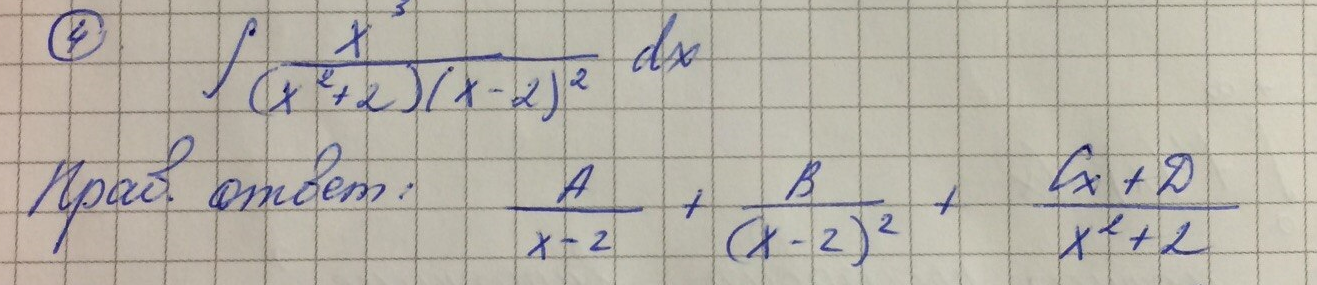 ④ ∫ x³/((x²+2)(x-2)²) dx
Прав. ответ: A/(x-2) + B/(x-2)² + (Cx+D)/(x²+2)